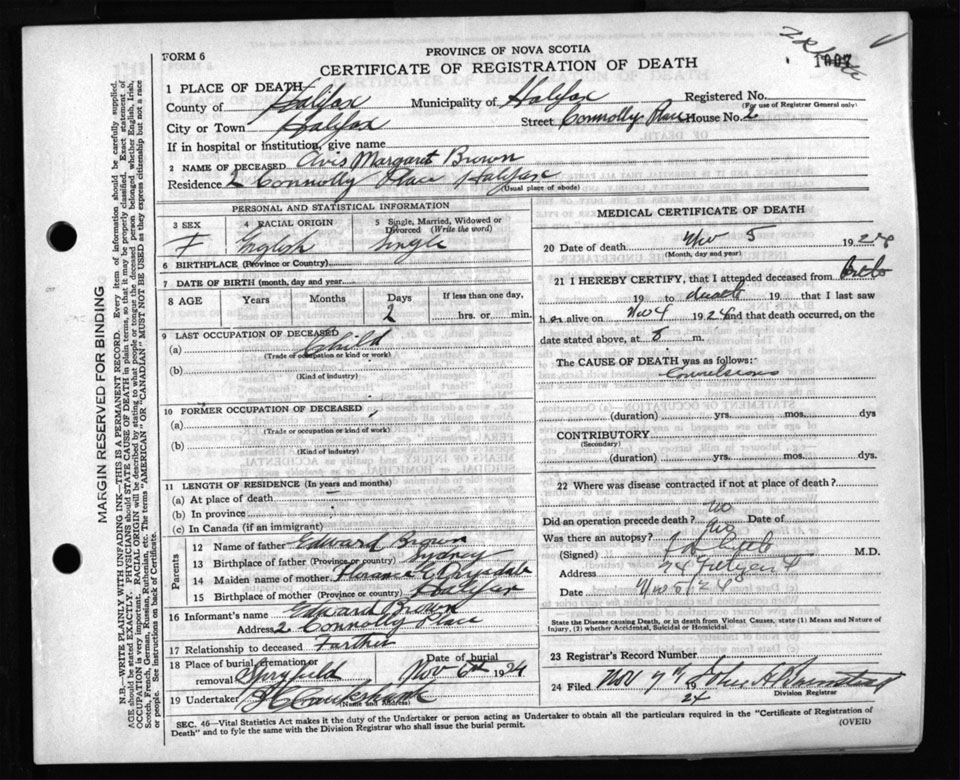 FORM 6
PROVINCE OF NOVA SCOTIA
CERTIFICATE OF REGISTRATION OF DEATH
1007
1 PLACE OF DEATH
County of Halifax Municipality of Halifax Registered No.
(For use of Registrar General only)
City or Town Halifax Street Connolly Place House No. 2
If in hospital or institution, give name
2 NAME OF DECEASED Avis Margaret Brown
Residence 2 Connolly Place Halifax
(Usual place of abode)
PERSONAL AND STATISTICAL INFORMATION
3 SEX 4 RACIAL ORIGIN 5 Single, Married, Widowed or Divorced (Write the word)
F English Single
6 BIRTHPLACE (Province or Country)
7 DATE OF BIRTH (month, day and year)
8 AGE Years Months Days If less than one day,
2 hrs. or min.
9 LAST OCCUPATION OF DECEASED
(a) Child
(Trade or occupation or kind of work)
(b)
(Kind of industry)
10 FORMER OCCUPATION OF DECEASED
(a)
(Trade or occupation or kind of work)
(b)
(Kind of industry)
11 LENGTH OF RESIDENCE (In years and months)
(a) At place of death
(b) In province
(c) In Canada (if an immigrant)
Parents
12 Name of father Edward Brown
13 Birthplace of father (Province or country) Sydney
14 Maiden name of mother Florence E Drysdale
15 Birthplace of mother (Province or country) Halifax
16 Informant's name Edward Brown
Address 2 Connolly Place
17 Relationship to deceased Farther
18 Place of burial, cremation or removal Spryfield Date of burial Nov 6th 1924
19 Undertaker
(Name and Address)
MEDICAL CERTIFICATE OF DEATH
20 Date of death Nov 5 1924
(Month, day and year)
21 I HEREBY CERTIFY, that I attended deceased from birth
19 to death 19 that I last saw
h er alive on Nov 4 1924 and that death occurred, on
date stated above, at 5 m.
The CAUSE OF DEATH was as follows:
Convulsions
(duration) yrs. mos. dys
CONTRIBUTORY
(Secondary)
(duration) yrs. mos. dys.
22 Where was disease contracted if not at place of death?
Did an operation precede death? no Date of
Was there an autopsy? no
(Signed) M.D.
Address 24
Date Nov 5/24
State the Disease causing Death, or in death from Violent Causes, state (1) Means and Nature of
Injury, (2) whether Accidental, Suicidal or Homicidal.
23 Registrar's Record Number
24 Filed Nov 7th 1924 John A
Division Registrar
SEC. 46—Vital Statistics Act makes it the duty of the Undertaker or person acting as Undertaker to obtain all the particulars required in the "Certificate of Registration of
Death" and to fyle the same with the Division Registrar who shall issue the burial permit.
(OVER)
MARGIN RESERVED FOR BINDING
N.B.—WRITE PLAINLY WITH UNFADING INK—THIS IS A PERMANENT RECORD. Every item of information should be carefully supplied.
AGE should be stated EXACTLY. PHYSICIANS should STATE CAUSE OF DEATH in plain terms, so that it may be properly classified. Exact statement of
OCCUPATION is very important. RACIAL ORIGIN will be described by stating to what people or tongue the deceased person belonged, whether English, Irish,
Scotch, French, German, Russian, Ruthenian, etc. The terms "AMERICAN" or "CANADIAN" MUST NOT BE USED as they express citizenship but not a race
or people. See instructions on back of Certificate.